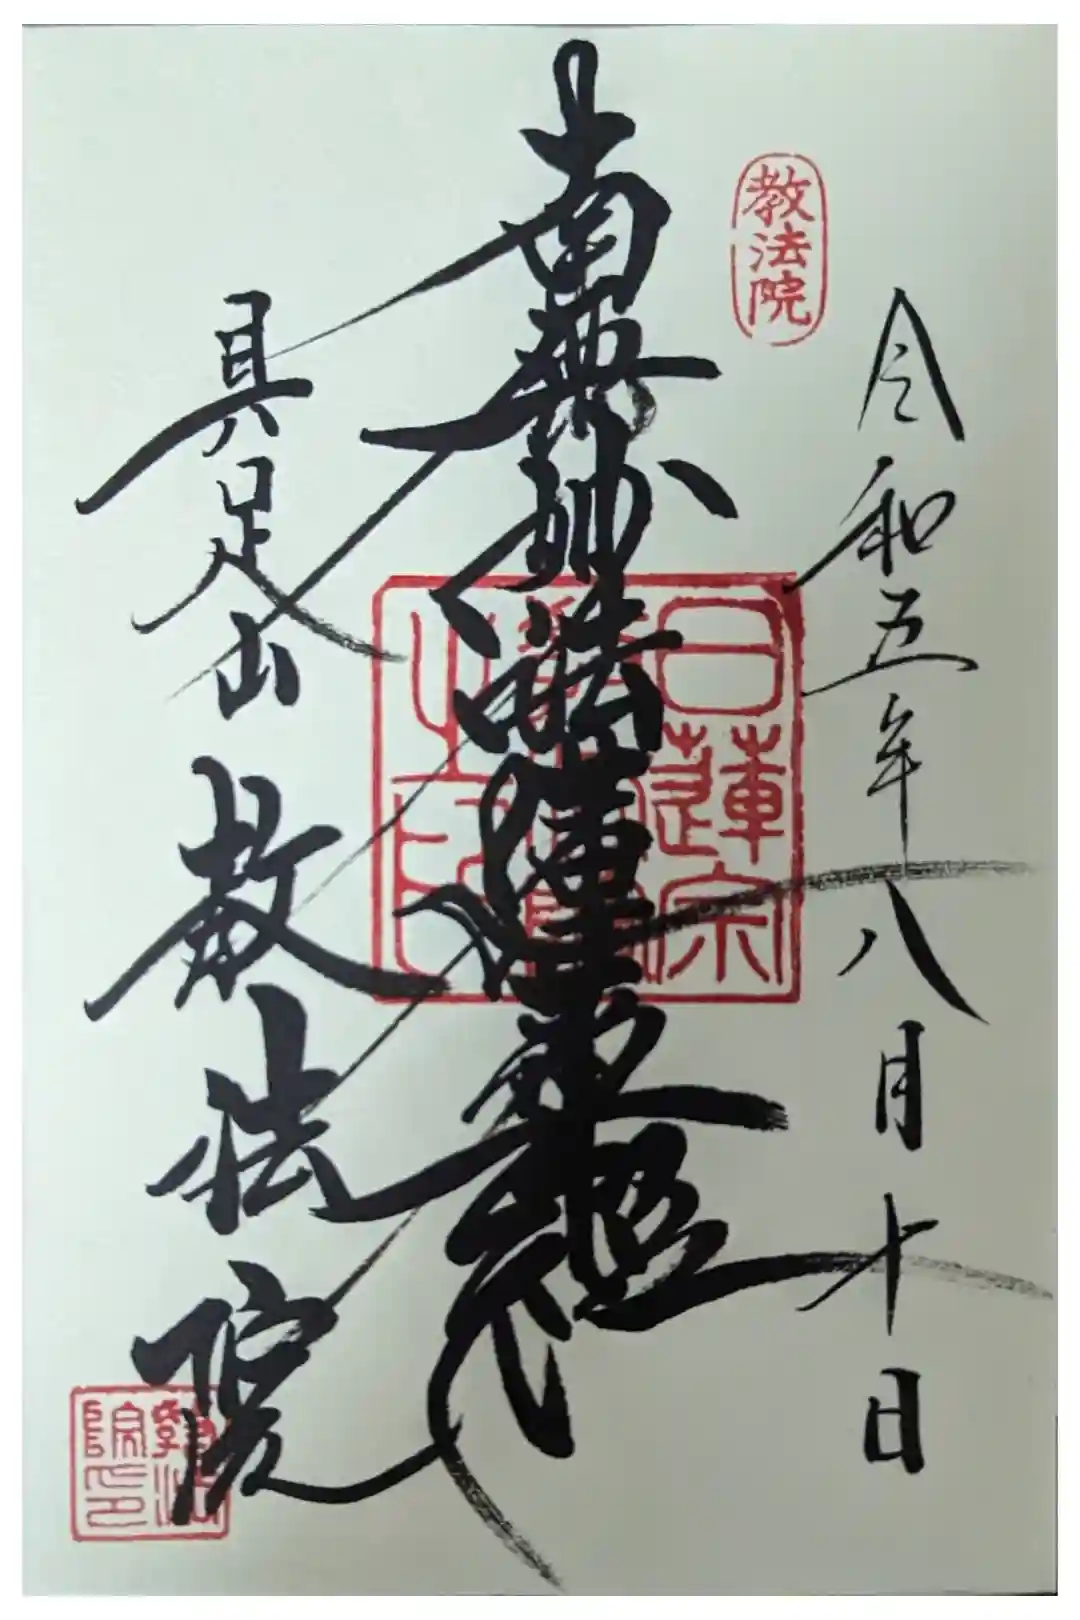 令和五年八月十日
教法院
南無妙法蓮華経
日蓮宗
具足山
教法院
教法院印